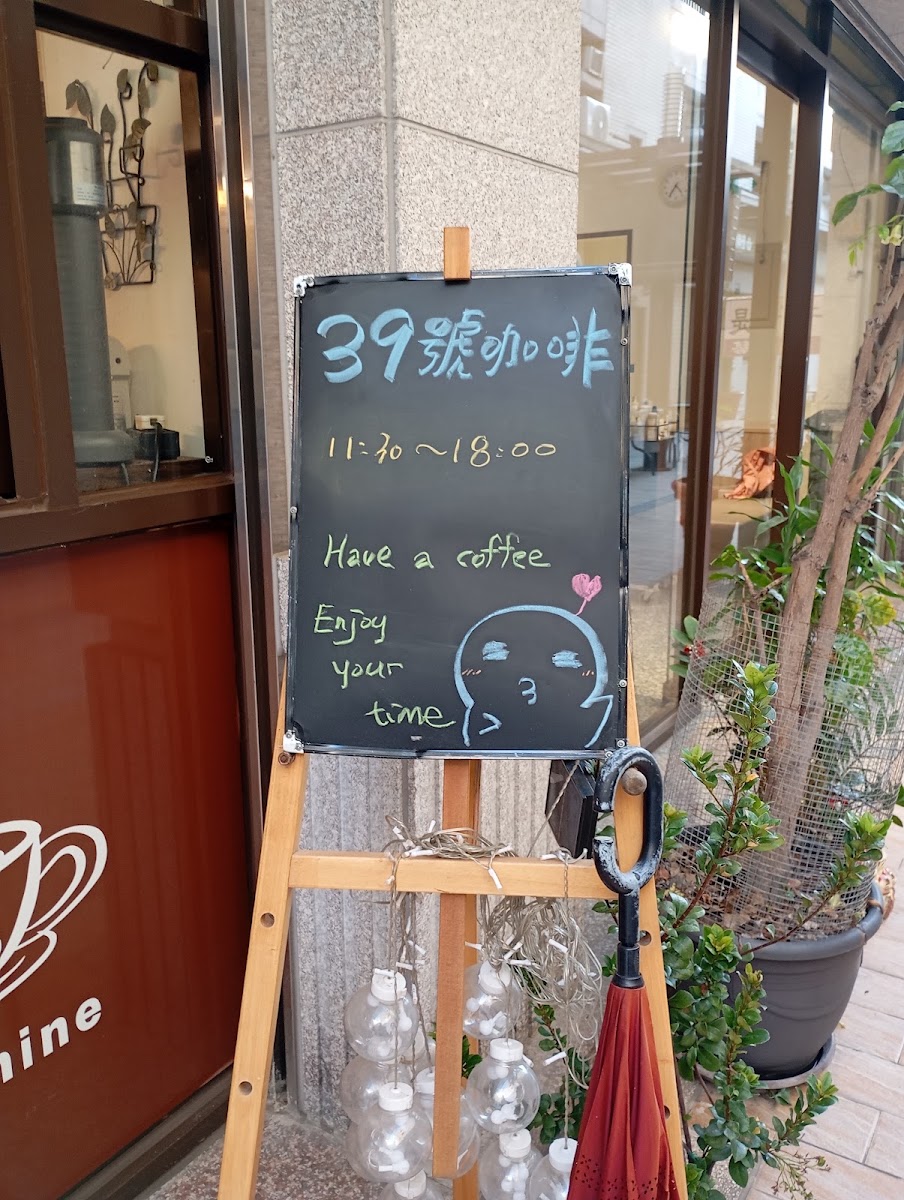 39號咖啡
11:30～18:00
Have a coffee
Enjoy
your
time
nine